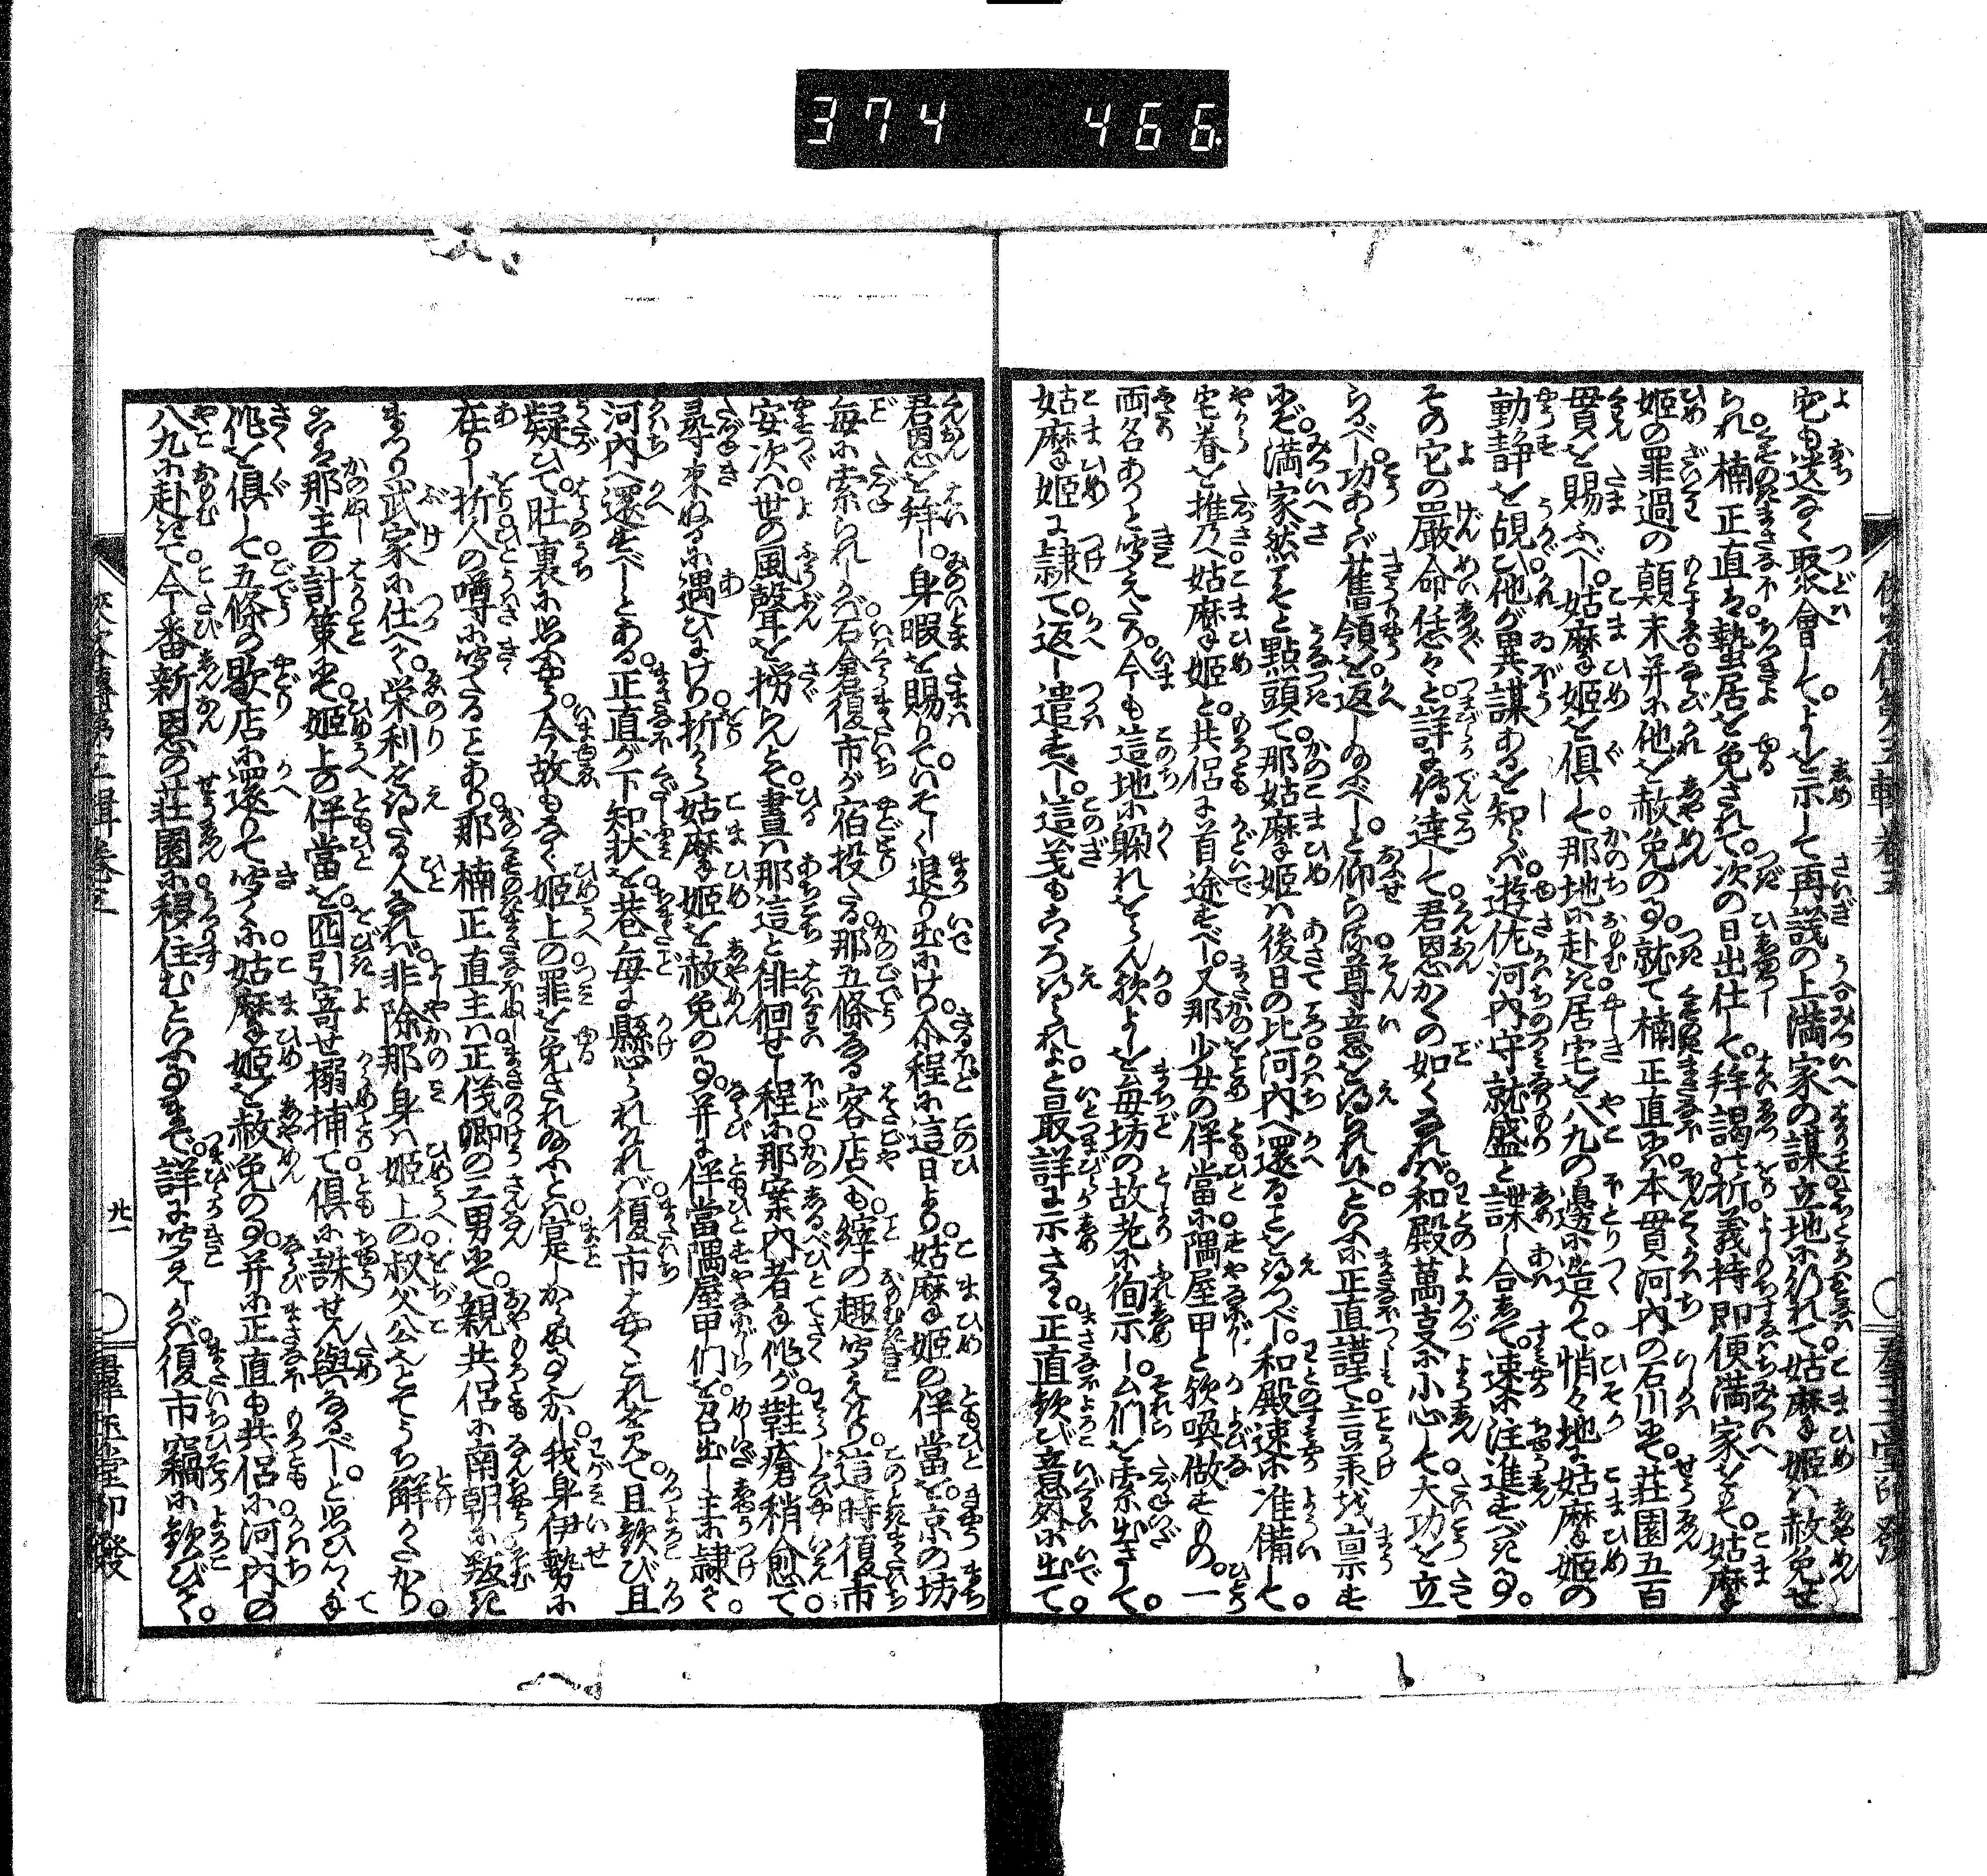 374 466
宅も送なく聚會して。よしを示して再議の上満家の謀立地に行れて姑摩姫は赦免せ
られ楠正直は蟄居を免されて。次の日出仕して。拜謁の折義持即便満家をもて。姑摩
姫の罪過の顛末并に他を赦免の事。就て楠正直には本貫河内の石川にて荘園五百
貫を賜ふべし。姑摩姫を倶して那地に赴き居宅を八九の邊に造りて。悄々地に姑摩姫の
動静を覘ひ他が異謀あるを知らば。遊佐河内守就盛と謀し合して。速に注進すべき事。
その宅の嚴命恁々と。詳に傳達して君恩かくの如くなれば。和殿萬夏に小心して大功を立
らるべし。功あらば舊領を返し給ふべしと仰らる。尊意を得られしといふに正直謹て言承し稟す
にぞ。満家然こそと點頭て。那姑摩姫は後日の比河内へ還ることを得つべし。和殿速に准備して。
宅眷を推乃へ姑摩姫と共侶に首途すべし。又那少女の伴當に隅屋甲と欤喚做すもの。一
両名ありと聞えたり。今も這地に躱れをらん欤。よしを毎坊の故老に徇示し。他們を索出さして。
姑摩姫に隷て。返し遣すべし。這義もこゝろ得られよと最詳に示さるゝ。正直歓び意外に出て。
君恩を拜し。身暇を賜りていそしく退り出にけり。介程に這日より。姑摩姫の伴當を。京の坊
毎に索られしかば。石倉復市が宿投たる。那五條なる客店へも。縡の趣聞えけり。這時復市
安次は世の風聲を撈らんとて。晝は那這と徘徊せし程に那案内者に做りし。他が鞋瘡稍愈て
尋来ぬるに遇ひにけり。折から姑摩姫を赦免の事。并に伴當隅屋甲們を。召出し主に隷て。
河内へ還すべしとある。正直が下知状を。巷毎に懸られたれば。復市はやくこれを見て。且歓び且
疑ひて。肚裏に思ふやう。今故もなく。姫上の罪を免され給ふとは。寔しからぬ事ぞかし。我身伊勢に
在りし折人の噂に聞たることあり。那楠正直主は正儀卿の三男にて。親共侶に南朝に叛き
まつり武家に仕へて。榮利を得たる人なれば非除那身は姫上の叔父公とてうち解かたかり。
こは那主の計策にて。姫上の伴當を。囮引寄せ搦捕て。倶に誅せん與なるべし。と思ひつゝ
他を倶して。五條の歇店に還りて聞くに。姑摩姫を赦免の事。并に正直も共侶に。河内の
八九に赴きて。今番新恩の荘園に移住むといふ事まで。詳に聞えしかば。復市竊に歓びて。
廿一